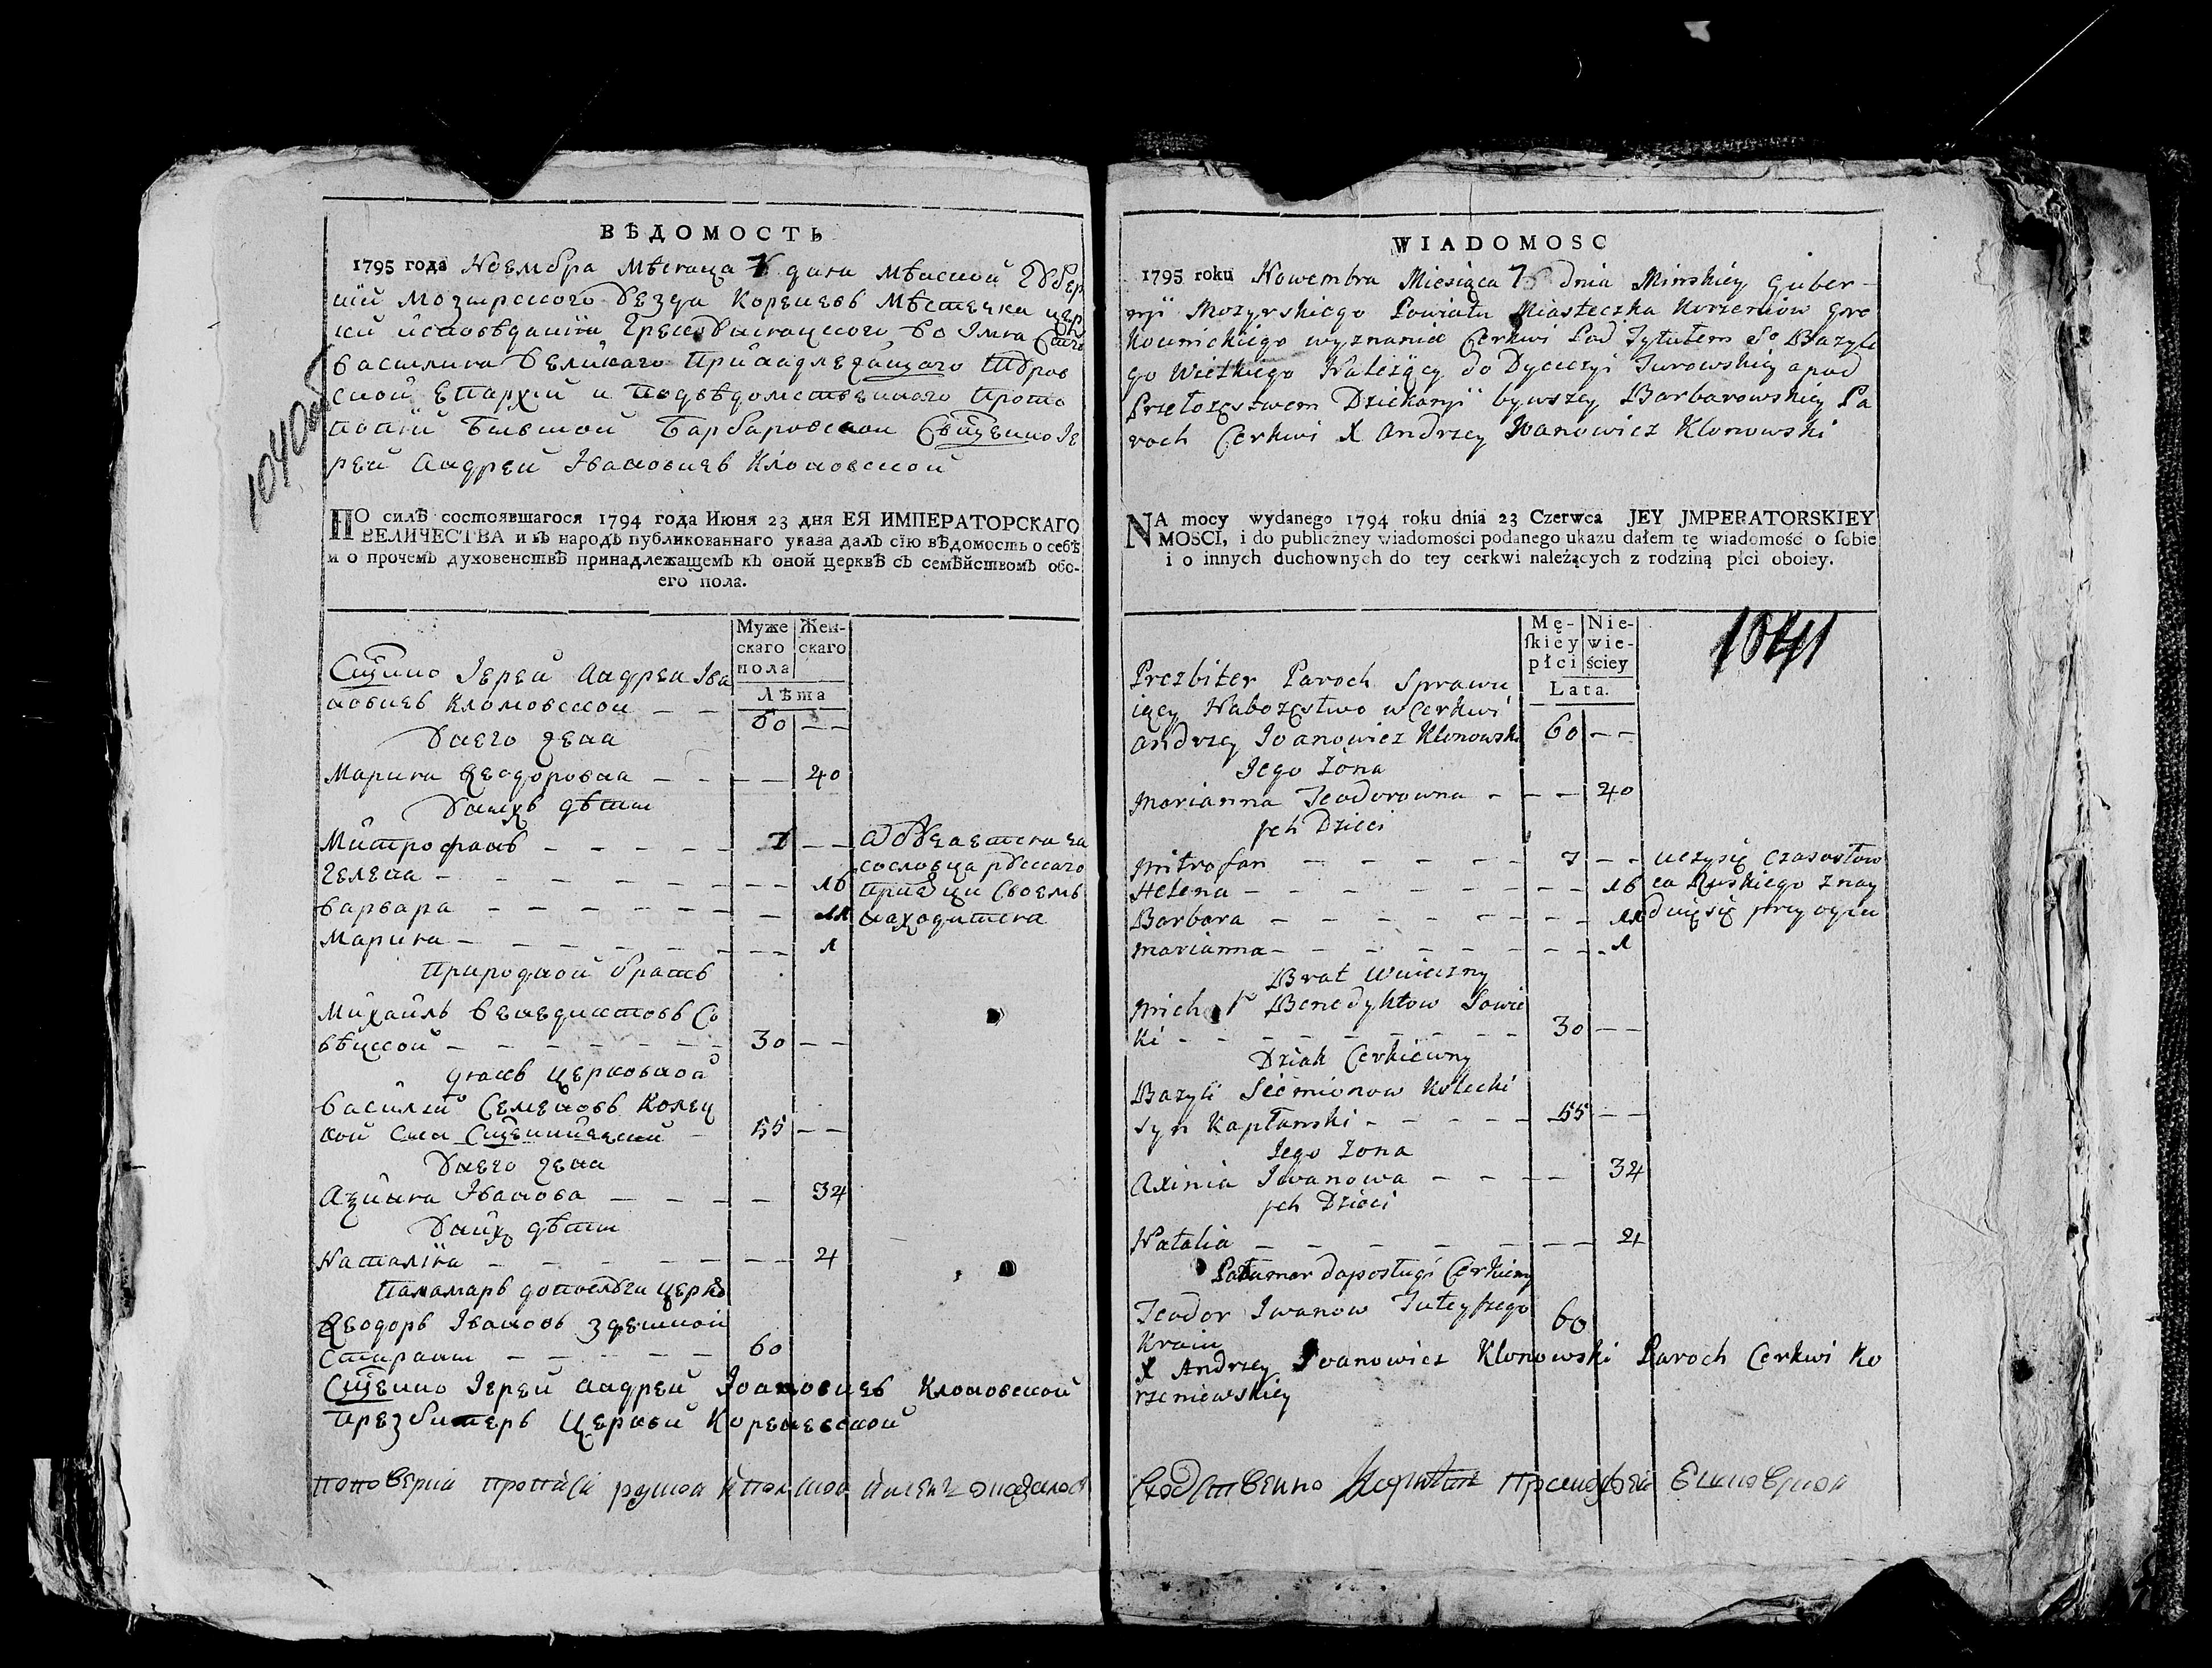 ВѢДОМОСТЬ
1795 года Ноембра Мѣсяца 7 дня Мѣнской Губер
нии Мозырского Уезда Кореневъ Мѣстечка цер
кви исповѣдания Грекоунитского во Імя Стго
Василия Великаго принадлежащаго Туров
ской Епархии и подвѣдомственного Прото
попии бывшой Барбаровской Свщенно Іе
рей Андрей Івановичъ Клоновской
1040об
ПО силѣ состоявшагося 1794 года Июня 23 дня ЕЯ ИМПЕРАТОРСКАГО
ВЕЛИЧЕСТВА и въ народъ публикованнаго указа далъ сїю вѣдомость о себѣ
и о прочемъ духовенствѣ принадлежащемъ къ оной церквѣ съ семѣйствомъ обо-
его пола.
Муже
скаго
пола
Жен-
скаго
Лѣта
Сщнно Іерей Андреи Іва
новичъ Клоновской — — 60 — —
Унего жена
Марина Феодоровна — — — — 40
Унихъ дѣти
Митрофанъ — — — — — 7 — —
Гелена — — — — — — — — 16
Варвара — — — — — — — — 11
Марина — — — — — — — — 1
сословца руского
при
находится
Природной братъ
Михаилъ Венедиктовъ Со
вѣцкой — — — — — — 30 — —
дякъ церковной
Василий Семеновъ Колец
кой Сын Сщенничаский — 55 — —
Унего жена
Аксиния Іванова — — — — — 34
Уних дѣти
Наталїя — — — — — — — — 2
Паламарь до послуги церко
Феодоръ Івановъ здешной
— — — — — 60
Сщенно Іерей Андрей Іоановичъ Клоновской
Презбитеръ Церкви Кореневской
WIADOMOSC
1795 roku Nowembra Miesiąca 7 dnia Minskiey Guber-
nji Mozyrskiego Powiatu Miasteczka Korzeniow Gre
kounickiego wyznania Cerkwi Pod Tytułem So Bazyle
go Wielkiego Należący do Dyecezyi Turowskiey a pod
Przełozęstwem Dziekanji bywszey Barbarowskiey Pa
roch Cerkwi X Andrzey Iwanowicz Klonowski
NA mocy wydanego 1794 roku dnia 23 Czerwca JEY JMPERATORSKIEY
MOSCI, i do publiczney wiadomości podanego ukazu dałem tę wiadomość o sobie
i o innych duchownych do tey cerkwi należących z rodziną płci oboiey.
Mę-
skiey
płci
Nie-
wie-
ściey
Lata.
1041
Prezbiter Paroch Sprawu
iący Nabozęstwo w Cerkwi
Andrzey Ioanowicz Klonowski 60 — —
Iego Zona
Marianna Teodorowna — — — 40
Ich Dzieci
Mitrofan — — — — — 7 — — uczysię czasosłow
Helena — — — — — — — — 16 ca Ruskiego znay
Barbara — — — — — — — — 11 duięsię przy oycu
Marianna — — — — — — — — 1
Brat
Michał Benedyktow Sowie
ki — — — — — — 30 — —
Dziak Cerkiewny
Bazyli Siemionow Kolecki
Syn Kapłanski — — — — — 55 — —
Iego Zona
Axinia Iwanowa — — — — 34
Ich Dzieci
Natalia — — — — — — — — 2
Pałamar do posługi Cerkiewny
Teodor Iwanow Tuteyszego 60
Kraiu
X Andrzey Iwanowicz Klonowski Paroch Cerkwi Ko
rzeniewskiey